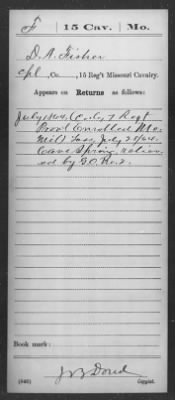 F 15 Cav. Mo.
D. A. Fisher
Cpl, Co. , 15 Reg't Missouri Cavalry.
Appears on Returns as follows:
July 1864 (Co. 7 Regt
Prov'l Enrolled Mo.
Mil) July 28/64.
Cave Spring, 
ed by G.O. No. 2.
Book mark:
(546) Copyist.